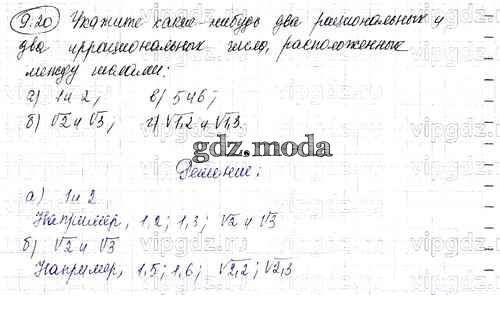 9.20 Укажите какие-нибудь два рациональных и
два иррациональных числа, расположенные
между числами:
а) 1 и 2; в) 5 и 6;
б) √2 и √3; г) √1,2 и √1,3.
gdz.moda
Решение:
а) 1 и 2
Например, 1,2; 1,3; √2 и √3
б) √2 и √3
Например, 1,5; 1,6; √2,2; √2,3
vipgdz.ru